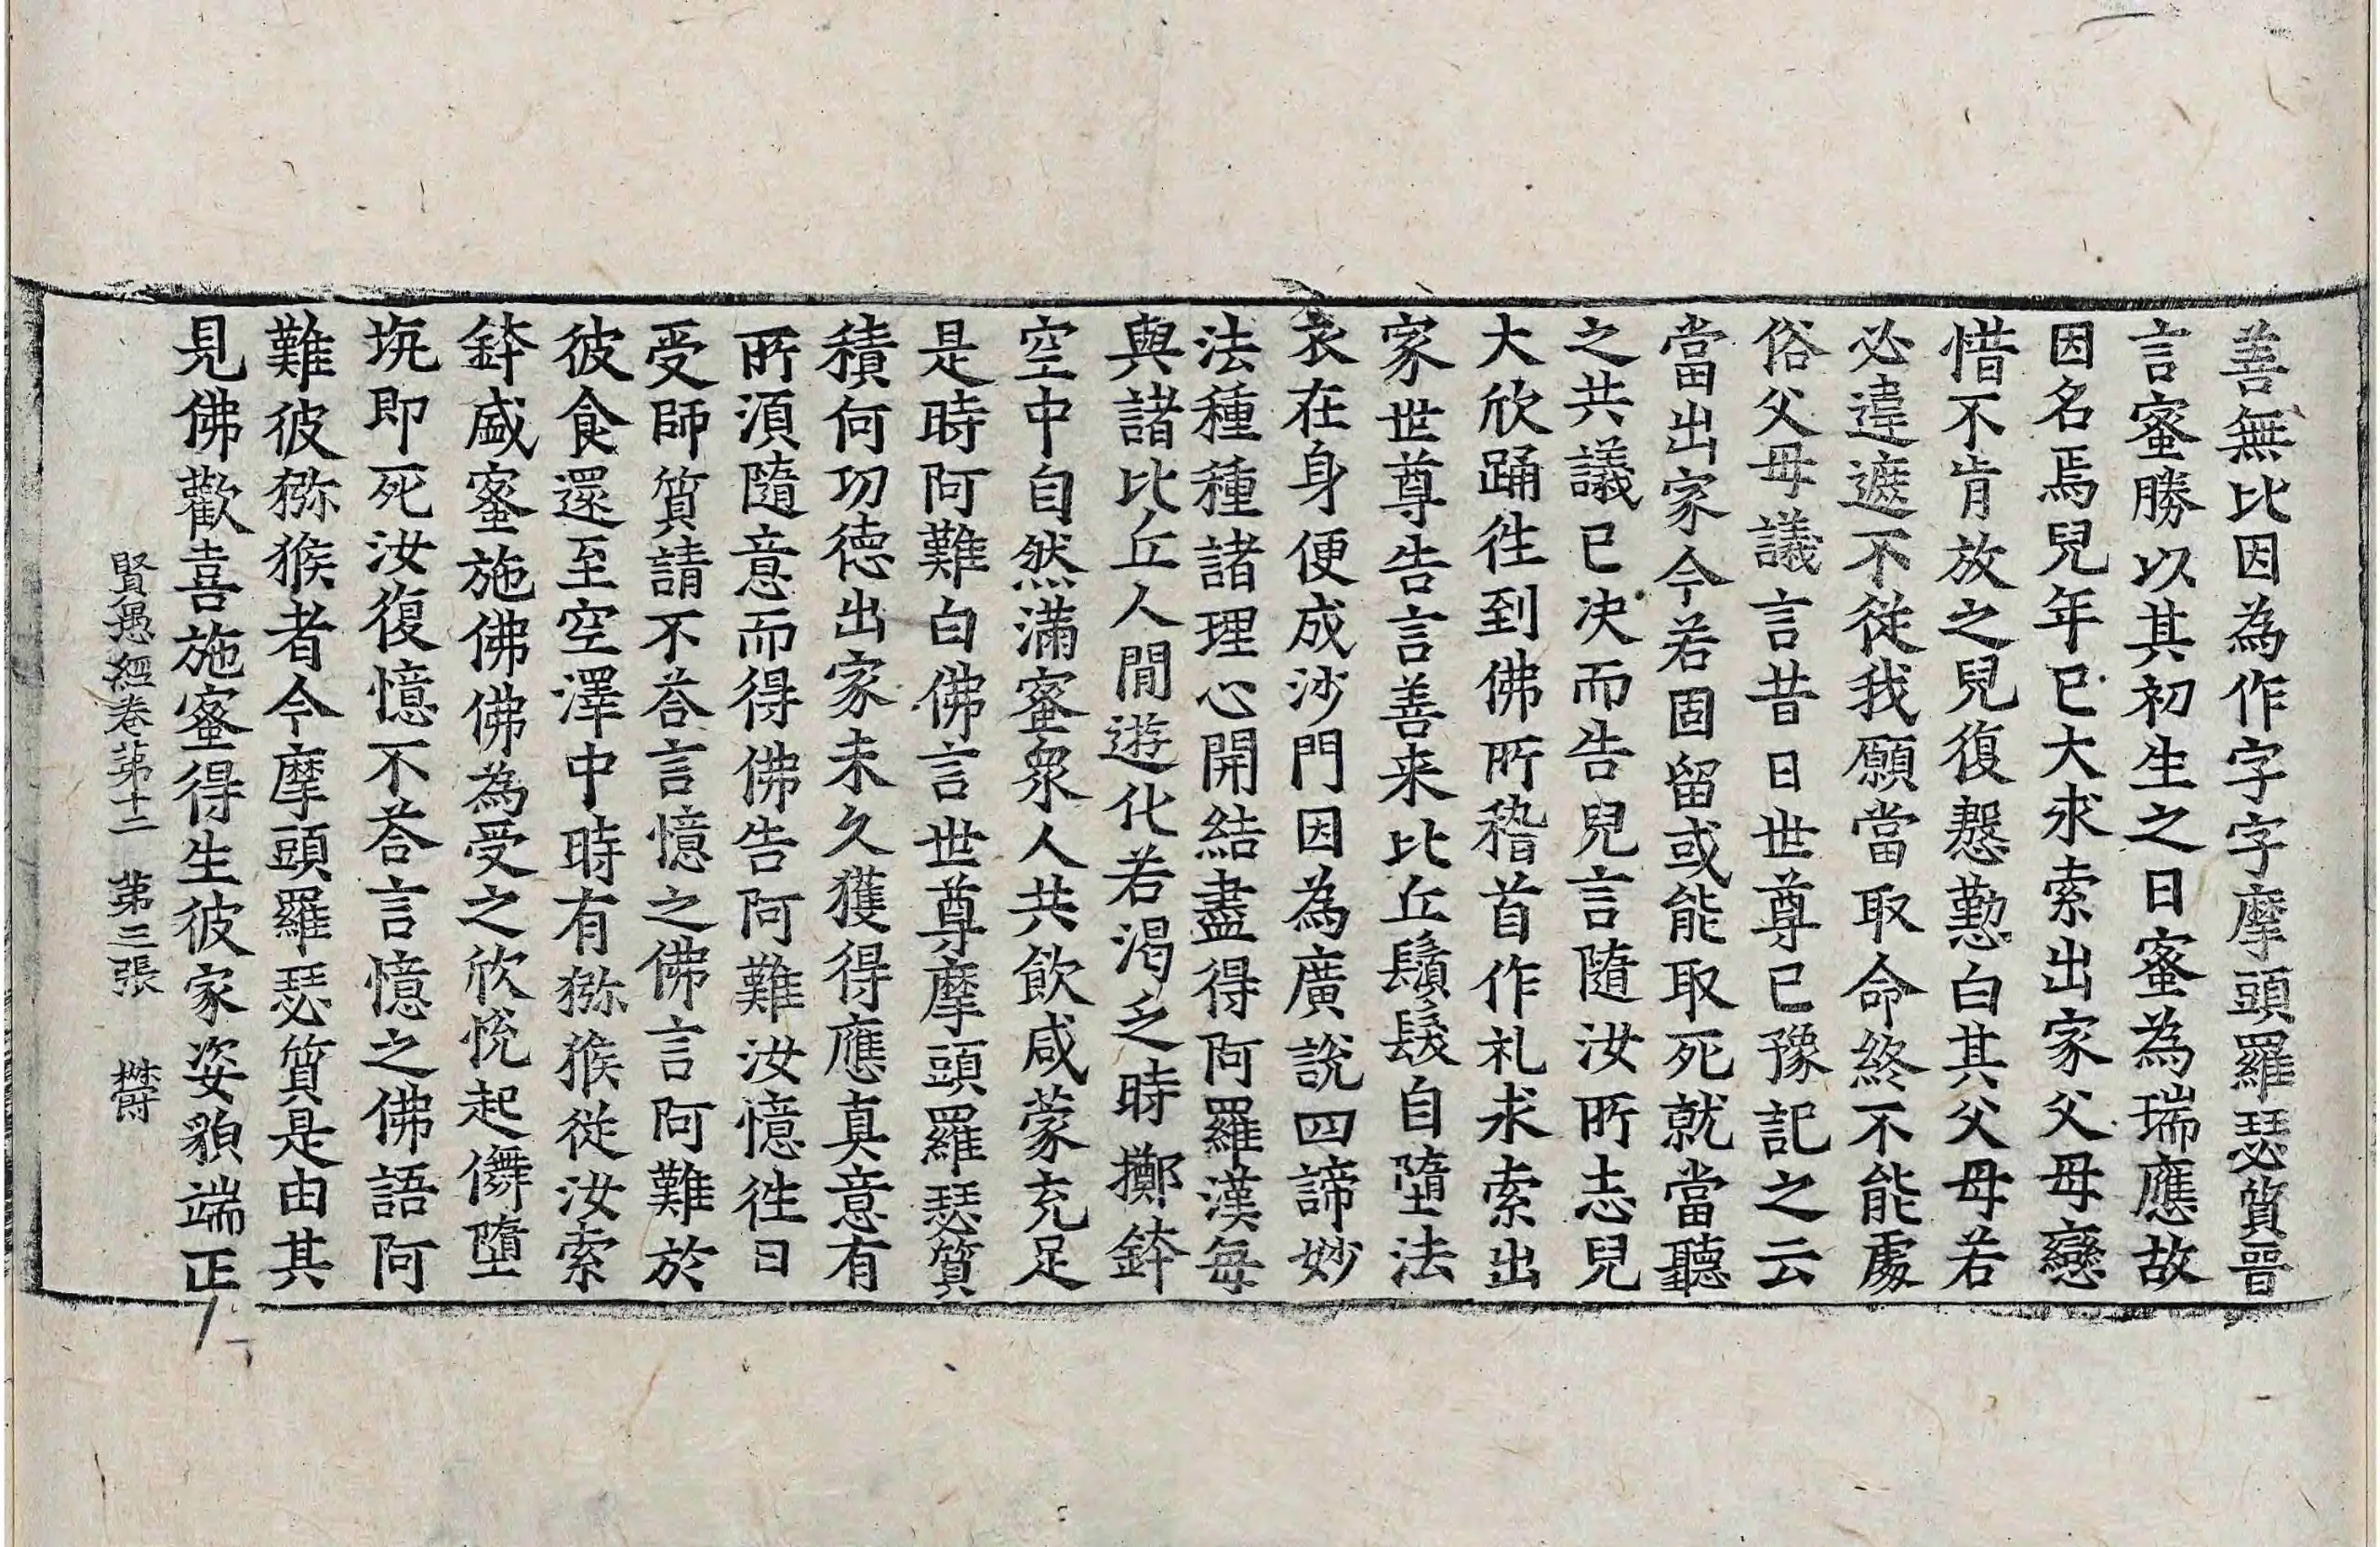 善無比因為作字字摩頭羅瑟質晉
言蜜勝以其初生之日蜜為瑞應故
因名焉兒年已大求索出家父母戀
惜不肯放之兒復慇懃白其父母若
必違遮不從我願當取命終不能處
俗父母議言昔日世尊已豫記之云
當出家今若固留或能取死就當聽
之共議已決而告兒言隨汝所志兒
大欣踊往到佛所稽首作礼求索出
家世尊告言善来比丘鬚髮自墮法
衣在身便成沙門因為廣說四諦妙
法種種諸理心開結盡得阿羅漢每
與諸比丘人間遊化若渴乏時擲鉢
空中自然滿蜜衆人共飲咸蒙充足
是時阿難白佛言世尊摩頭羅瑟質
積何功德出家未久獲得應真意有
所須隨意而得佛告阿難汝憶往日
受師質請不荅言憶之佛言阿難於
彼食還至空澤中時有獼猴從汝索
鉢盛蜜施佛佛為受之欣悅起儛墮
坑即死汝復憶不荅言憶之佛語阿
難彼獼猴者今摩頭羅瑟質是由其
見佛歡喜施蜜得生彼家姿貌端正
賢愚經卷苐十二　苐三張　欝